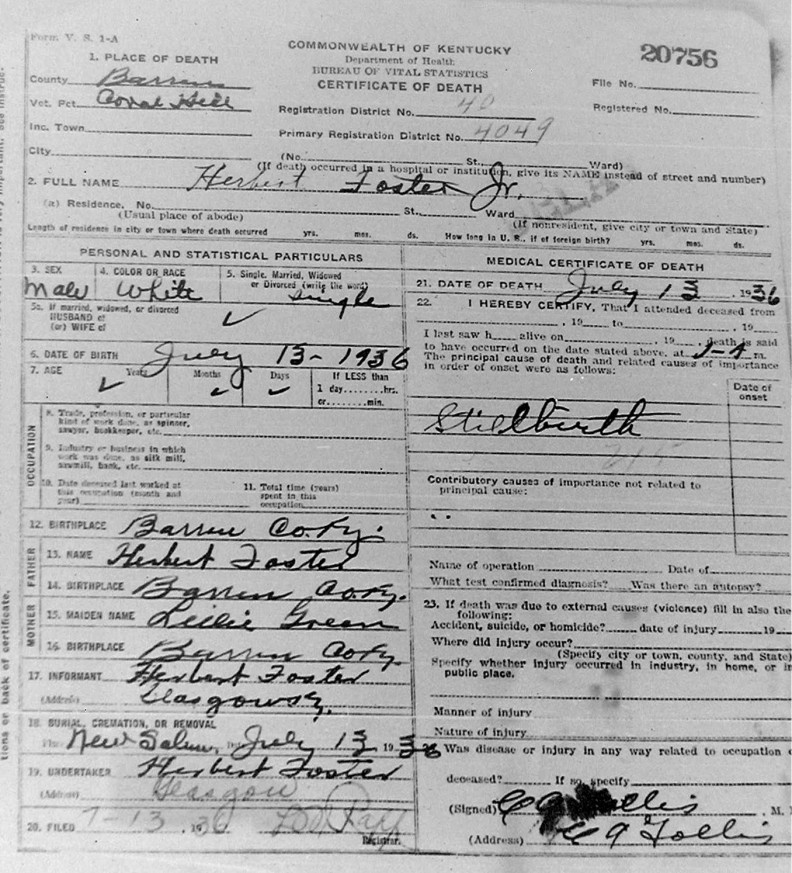 Form V. S. 1-A
COMMONWEALTH OF KENTUCKY
Department of Health
BUREAU OF VITAL STATISTICS
CERTIFICATE OF DEATH
20756
1. PLACE OF DEATH
County Barren
Vot. Pct. Coral Hill
Inc. Town
City
Registration District No. 40
Primary Registration District No. 4049
File No.
Registered No.
(No. St. Ward)
(If death occurred in a hospital or institution, give its NAME instead of street and number)
2. FULL NAME Herbert Foster Jr.
(a) Residence. No. St. Ward
(Usual place of abode) (If nonresident, give city or town and State)
Length of residence in city or town where death occurred yrs. mos. ds. How long in U. S., if of foreign birth? yrs. mos. ds.
PERSONAL AND STATISTICAL PARTICULARS
3. SEX 4. COLOR OR RACE 5. Single, Married, Widowed
or Divorced (write the word)
Male White Single
5a. If married, widowed, or divorced
HUSBAND of
(or) WIFE of
6. DATE OF BIRTH July 13-1936
7. AGE Years Months Days If LESS than
1 day........hrs.
or........min.
OCCUPATION
8. Trade, profession, or particular
kind of work done, as spinner,
sawyer, bookkeeper, etc.
9. Industry or business in which
work was done, as silk mill,
sawmill, bank, etc.
10. Date deceased last worked at
this occupation (month and
year)
11. Total time (years)
spent in this
occupation
12. BIRTHPLACE Barren Co Ky.
FATHER
13. NAME Herbert Foster
14. BIRTHPLACE Barren Co Ky.
MOTHER
15. MAIDEN NAME Lillie Green
16. BIRTHPLACE Barren Co Ky.
17. INFORMANT Herbert Foster
(Address) Glasgow Ky.
18. BURIAL, CREMATION, OR REMOVAL
New Salem, July 13 1936
19. UNDERTAKER Herbert Foster
(Address) Glasgow
20. FILED 7-13 1936
Registrar.
MEDICAL CERTIFICATE OF DEATH
21. DATE OF DEATH July 13 1936
22. I HEREBY CERTIFY, That I attended deceased from
, 19 to , 19
I last saw h alive on , 19 , death is said
to have occurred on the date stated above, at m.
The principal cause of death and related causes of importance
in order of onset were as follows:
Date of
onset
Stillbirth
Contributory causes of importance not related to
principal cause:
Name of operation Date of
What test confirmed diagnosis? Was there an autopsy?
23. If death was due to external causes (violence) fill in also the
following:
Accident, suicide, or homicide? date of injury 19
Where did injury occur?
(Specify city or town, county, and State)
Specify whether injury occurred in industry, in home, or in
public place.
Manner of injury
Nature of injury
Was disease or injury in any way related to occupation
deceased? If so, specify
(Signed)
(Address)
tions or back of certificate.